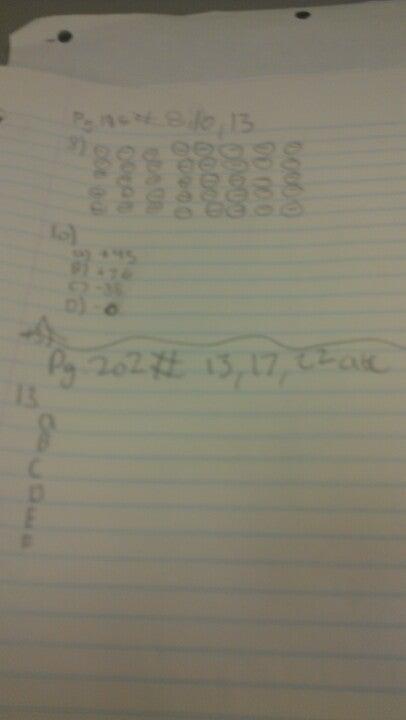 Pg 196 # 8,10,13
8)
10)
A) +45
B) +36
C) -35
D) -0
Pg 202 # 13, 17, 22 a&c
13
A
B
C
D
E